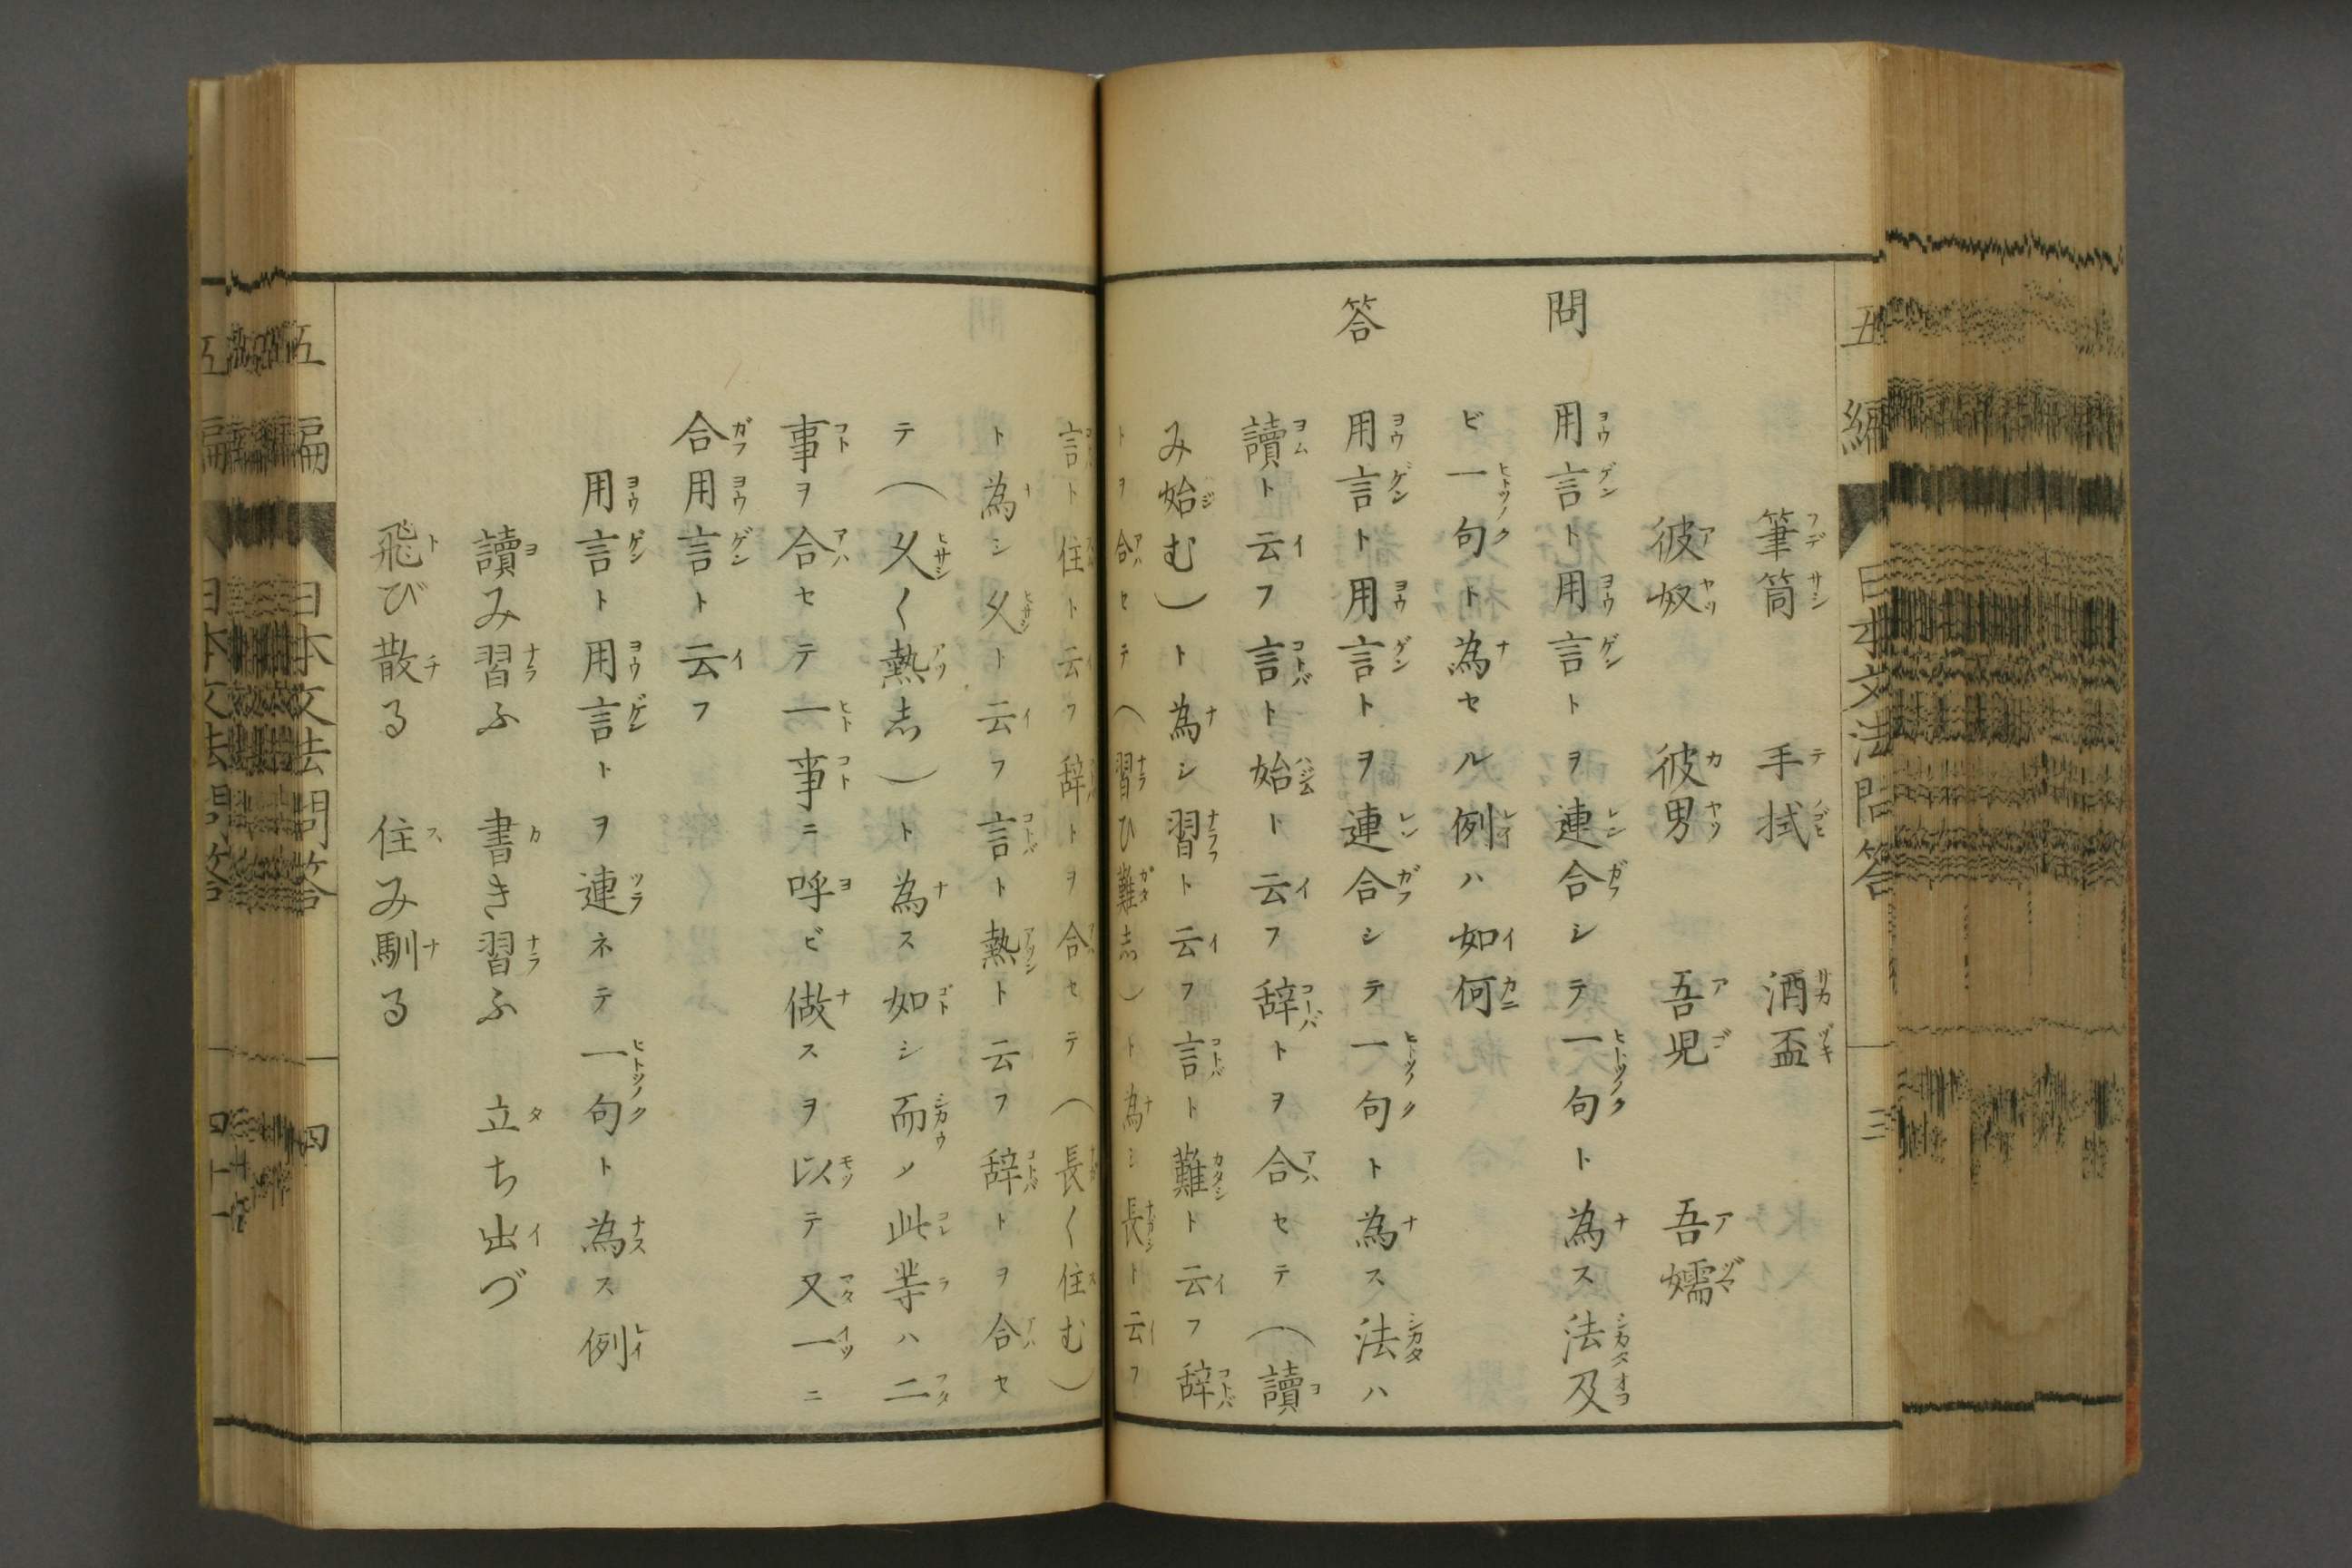 五編 日本文法問答 三
筆筒 手拭 酒盃
彼奴 彼男 吾児 吾嬬
問 用言ト用言トヲ連合シテ一句ト為ス法及
ビ一句ト為セル例ハ如何
答 用言ト用言トヲ連合シテ一句ト為ス法ハ
讀ト云フ言ト始ト云フ辞トヲ合セテ(讀
み始む)ト為シ習ト云フ言ト難ト云フ辞
トヲ合セテ(習ひ難志)ト為シ長ト云フ
言ト住ト云フ辞トヲ合セテ(長く住む)
ト為シ乆ト云フ言ト熱ト云フ辞トヲ合セ
テ(乆く熱志)ト為ス如シ而ノ此等ハ二
事ヲ合セテ一事ニ呼ビ做スヲ以テ又一ニ
合用言ト云フ
用言ト用言トヲ連ネテ一句ト為ス例
讀み習ふ 書き習ふ 立ち出づ
飛び散る 住み馴る
五編 日本文法問答 四